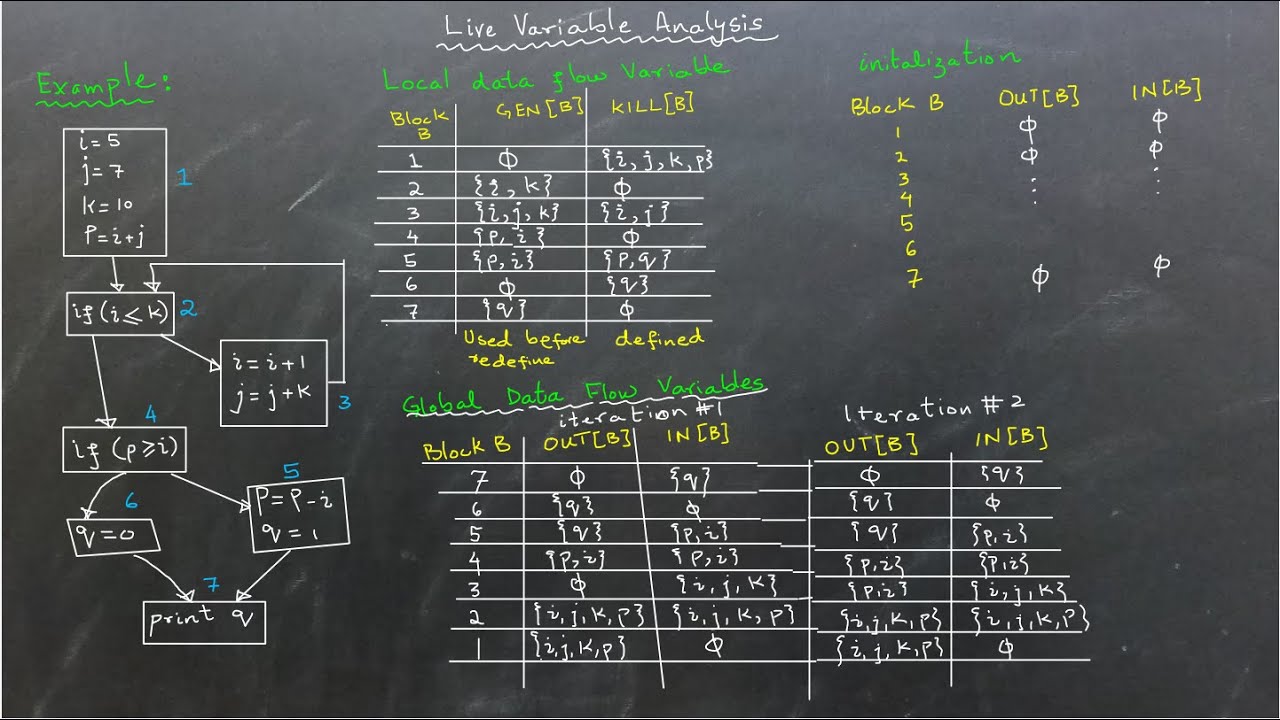 Live Variable Analysis
Example:
i = 5
j = 7
k = 10
P = i + j
1
if (i ≤ k)
2
i = i + 1
j = j + k
3
4
if (p ≥ i)
5
P = P - i
q = 1
6
q = 0
7
print q
Local data flow Variable
Block B GEN[B] KILL[B]
1 Φ {i, j, k, p}
2 {i, k} Φ
3 {i, j, k} {i, j}
4 {P, i} Φ
5 {P, i} {P, q}
6 Φ {q}
7 {q} Φ
Used before redefine defined
initalization
Block B OUT[B] IN[B]
1 Φ Φ
2 Φ Φ
3 : :
4 : :
5
6
7 Φ Φ
Global Data Flow Variables
iteration #1 Iteration # 2
Block B OUT[B] IN[B] OUT[B] IN[B]
7 Φ {q} Φ {q}
6 {q} Φ {q} Φ
5 {q} {p, i} {q} {p, i}
4 {p, i} {p, i} {p, i} {p, i}
3 Φ {i, j, k} {p, i} {i, j, k}
2 {i, j, k, p} {i, j, k, p} {i, j, k, p} {i, j, k, p}
1 {i, j, k, p} Φ {i, j, k, p} Φ